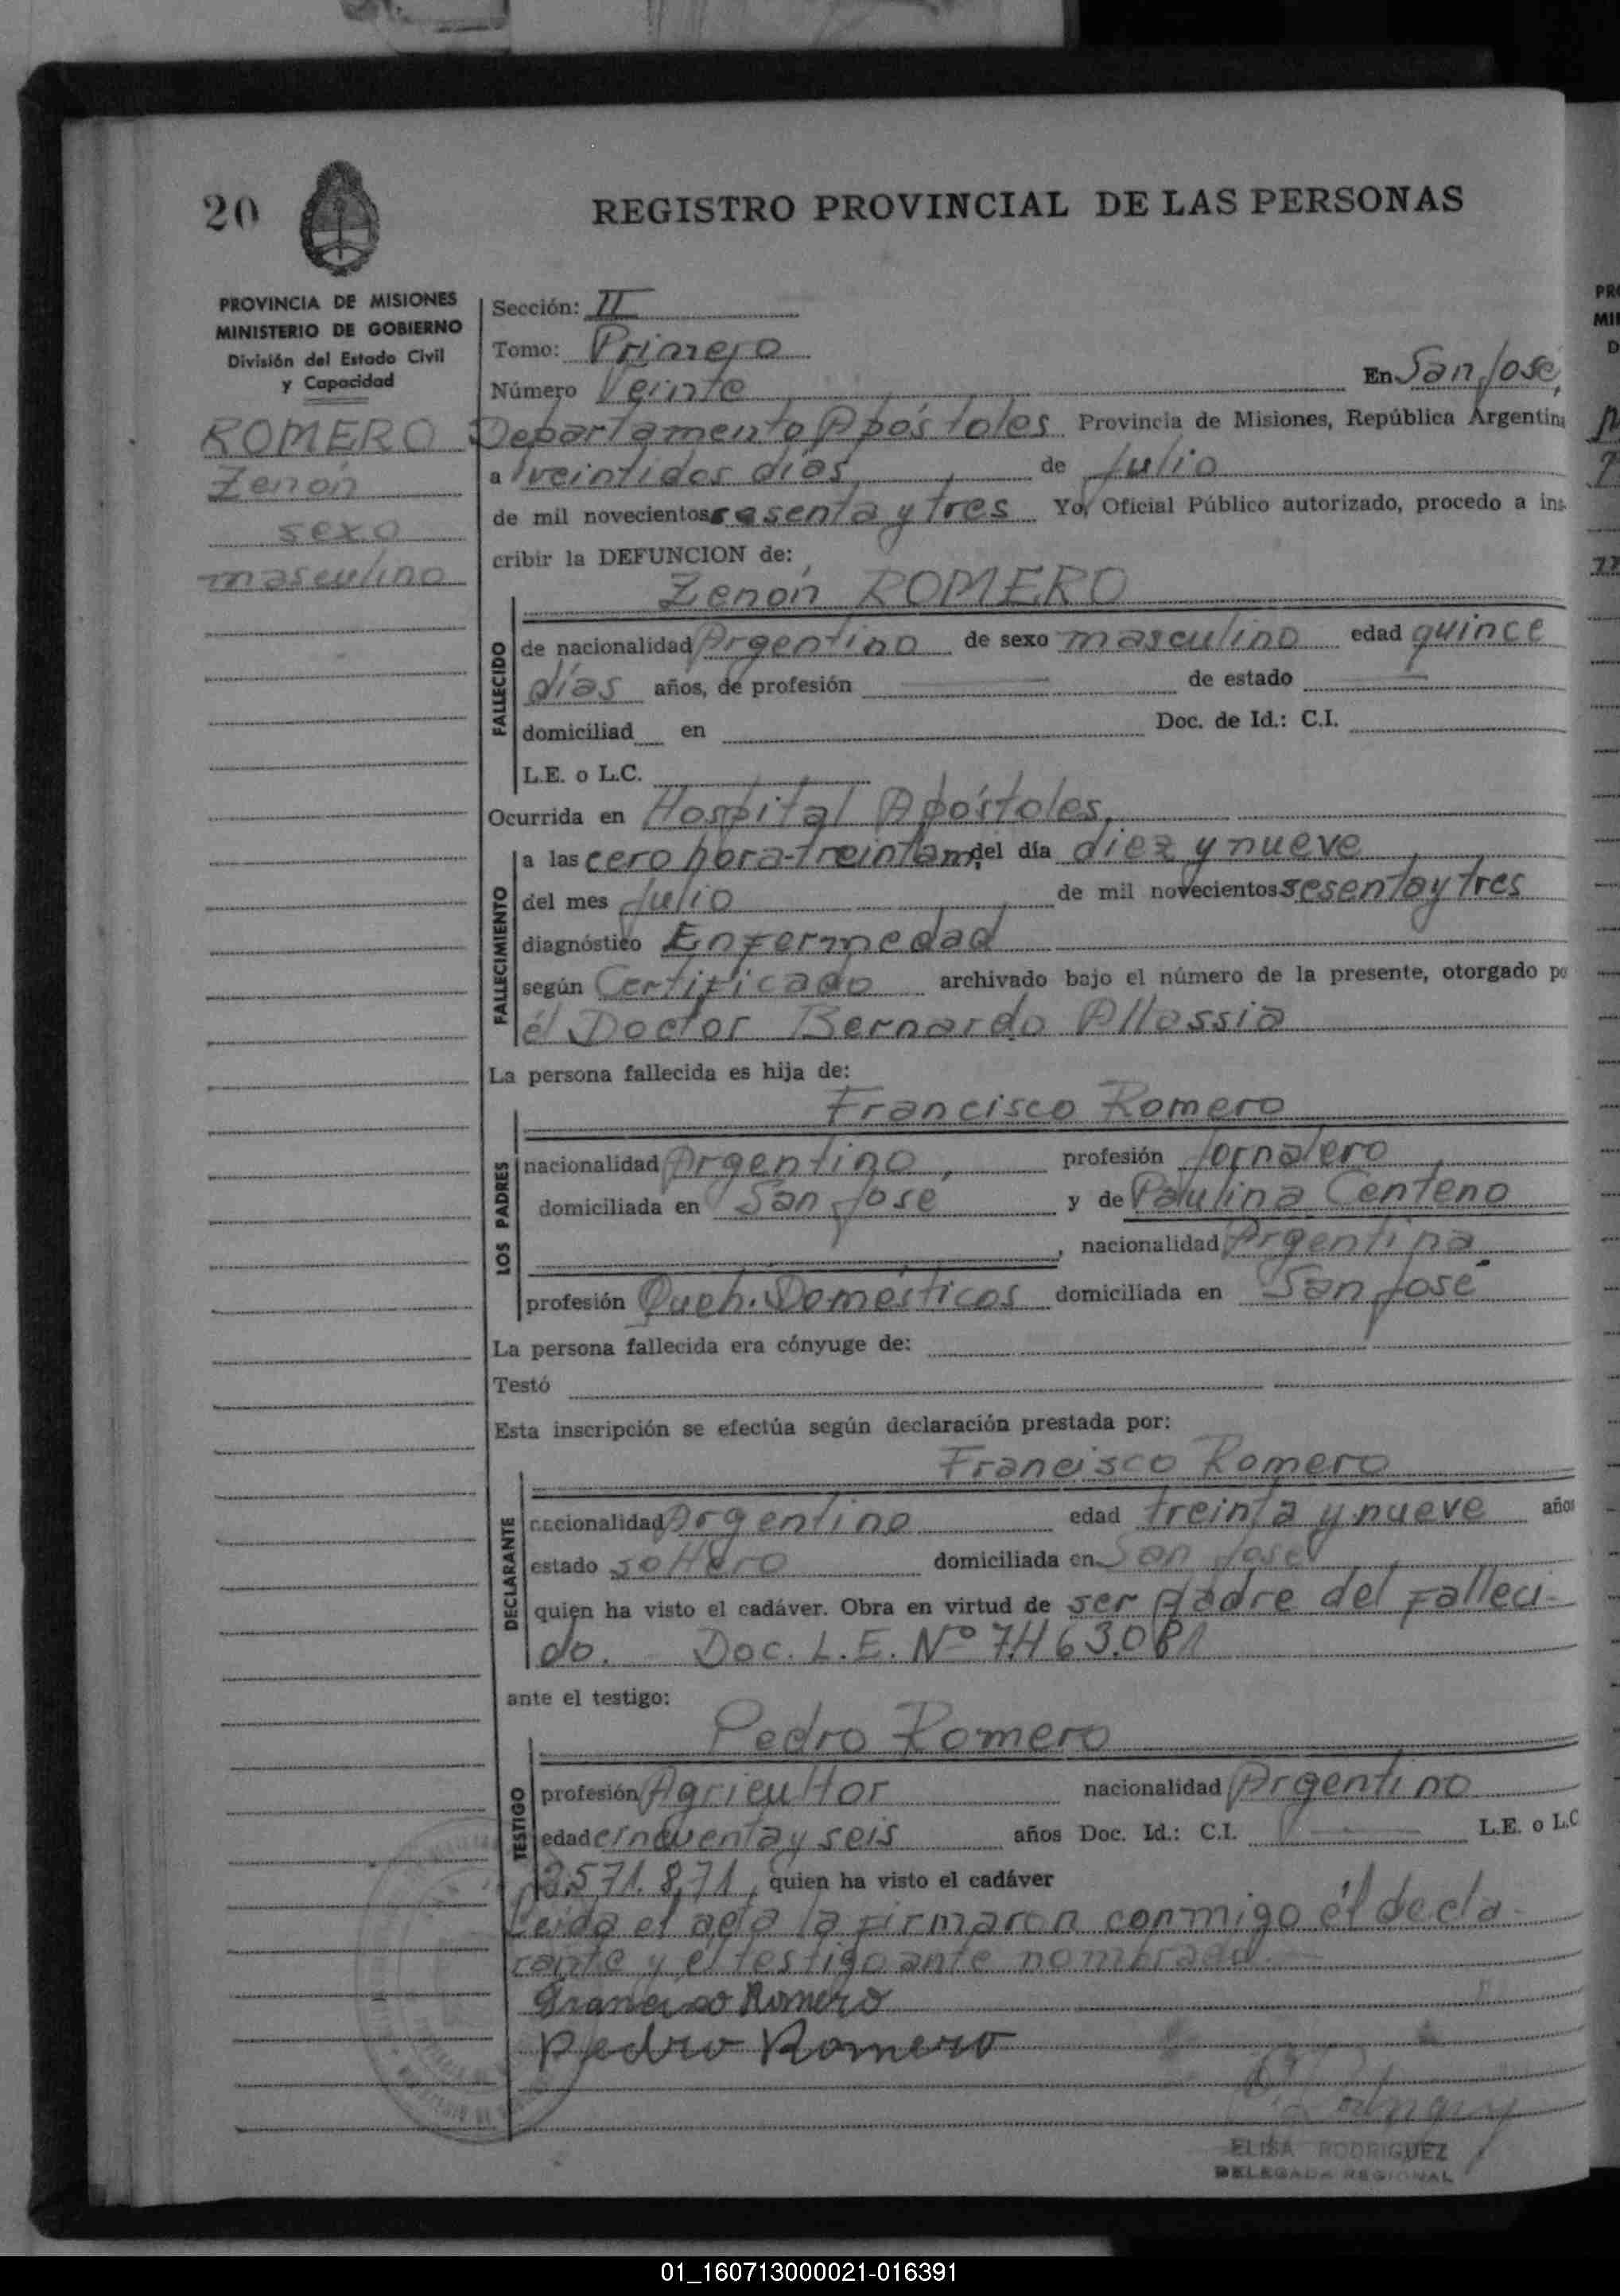 20
REGISTRO PROVINCIAL DE LAS PERSONAS
PROVINCIA DE MISIONES
MINISTERIO DE GOBIERNO
División del Estado Civil
y Capacidad
ROMERO
Zenón
sexo
masculino
Sección: II
Tomo: Primero
Número Veinte En San José,
Departamento Apóstoles Provincia de Misiones, República Argentina
a veintidos días de Julio
de mil novecientos sesenta y tres Yo, Oficial Público autorizado, procedo a ins-
cribir la DEFUNCION de:
Zenón ROMERO
FALLECIDO
de nacionalidad Argentino de sexo masculino edad quince
días años, de profesión de estado
domiciliad en Doc. de Id.: C.I.
L.E. o L.C.
Ocurrida en Hospital Apóstoles,
FALLECIMIENTO
a las cero hora-treinta m, del día diez y nueve
del mes Julio de mil novecientos sesenta y tres
diagnóstico Enfermedad
según Certificado archivado bajo el número de la presente, otorgado po
él Doctor Bernardo Allassia
La persona fallecida es hija de:
Francisco Romero
LOS PADRES
nacionalidad Argentino, profesión Jornalero
domiciliada en San Jose y de Paulina Centeno
, nacionalidad Argentina
profesión Queh. Domésticos domiciliada en San José
La persona fallecida era cónyuge de:
Testó
Esta inscripción se efectúa según declaración prestada por:
Francisco Romero
DECLARANTE
nacionalidad Argentino edad treinta y nueve años
estado soltero domiciliada en San José
quien ha visto el cadáver. Obra en virtud de ser padre del falleci-
do. Doc. L.E. Nº 7.463.081
ante el testigo:
Pedro Romero
TESTIGO
profesión Agricultor nacionalidad Argentino
edad cincuenta y seis años Doc. Id.: C.I. L.E. o L.C
2.571.871, quien ha visto el cadáver
Leída el acta la firmaron conmigo él decla-
rante y el testigo ante nombrado.
Francisco Romero
Pedro Romero
ELISA RODRIGUEZ
DELEGADA REGIONAL
01_160713000021-016391